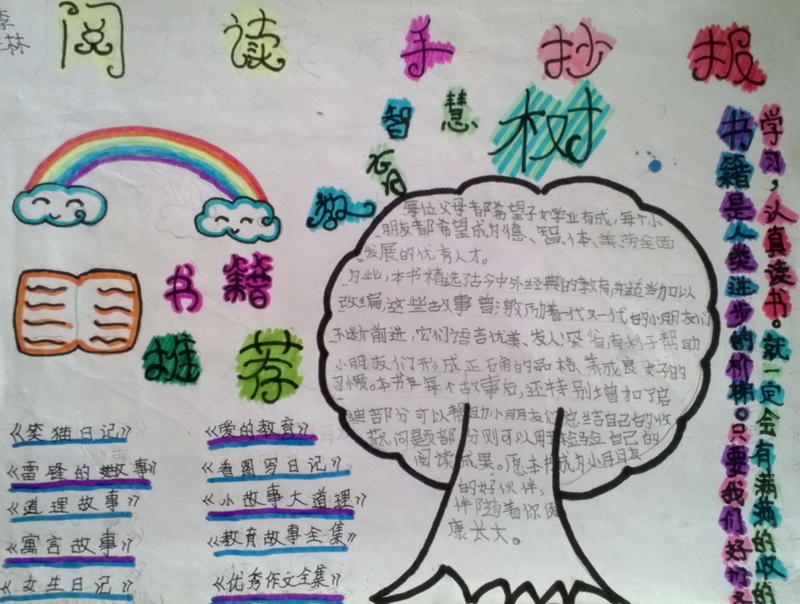 阅读手抄报
智慧树
教育
每位父母都希望子女学业有成，每个小
朋友都希望成为德、智、体、美、劳全面
发展的优秀人才。
为此，本书精选了古今中外经典的教育，并适当加以
改编，这些故事曾激励着一代又一代的小朋友们
不断前进，它们语言优美、发人深省有利于帮助
小朋友们形成正确的品格、养成良好的
习惯。本书在每个故事后，还特别增加了启
迪部分可以帮助小朋友们总结自己的收
获，问题部分则可以用来检验自己的
阅读成果。愿本书成为小朋友
的好伙伴，
伴随着你健
康长大。
书籍
推荐
《笑猫日记》
《雷锋的故事》
《道理故事》
《寓言故事》
《女生日记》
《爱的教育》
《看图写日记》
《小故事大道理》
《教育故事全集》
《优秀作文全集》
书籍是人类进步的阶梯。只要我们好好
学习，认真读书。就一定会有满满的收的